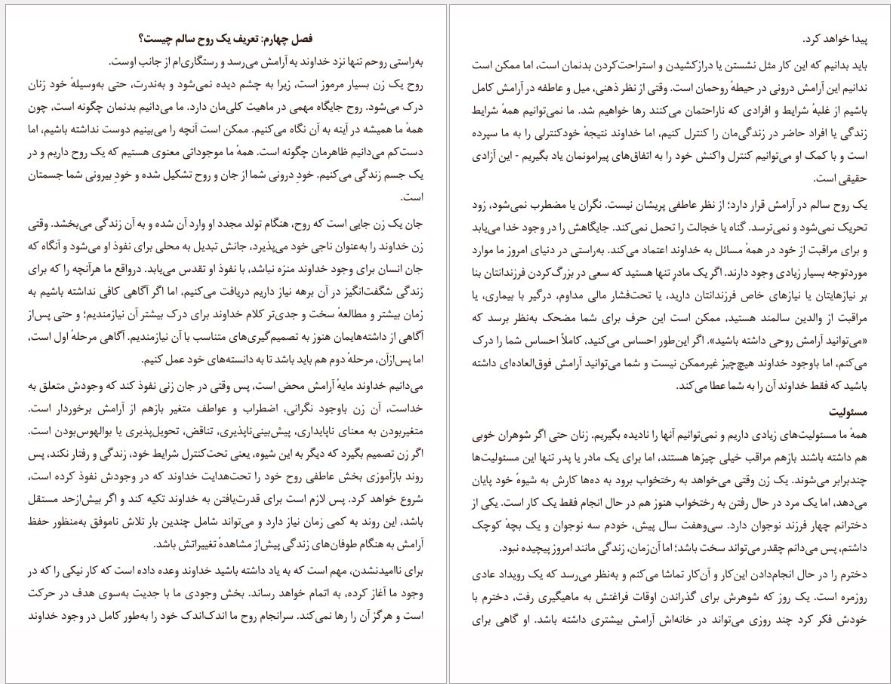 فصل چهارم: تعریف یک روح سالم چیست؟
به‌راستی روحم تنها نزد خداوند به آرامش می‌رسد و رستگاری‌ام از جانب اوست.
روح یک زن بسیار مرموز است، زیرا به چشم دیده نمی‌شود و به‌ندرت، حتی به‌وسیلهٔ خود زنان
درک می‌شود. روح جایگاه مهمی در ماهیت کلی‌مان دارد. ما می‌دانیم بدنمان چگونه است، چون
همهٔ ما همیشه در آینه به آن نگاه می‌کنیم. ممکن است آنچه را می‌بینیم دوست نداشته باشیم، اما
دست‌کم می‌دانیم ظاهرمان چگونه است. همهٔ ما موجوداتی معنوی هستیم که یک روح داریم و در
یک جسم زندگی می‌کنیم. خودِ درونی شما از جان و روح تشکیل شده و خودِ بیرونی شما جسمتان
است.
جان یک زن جایی است که روح، هنگام تولد مجدد او وارد آن شده و به آن زندگی می‌بخشد. وقتی
زن خداوند را به‌عنوان ناجی خود می‌پذیرد، جانش تبدیل به محلی برای نفوذ او می‌شود و آنگاه که
جان انسان برای وجود خداوند منزه نباشد، با نفوذ او تقدس می‌یابد. درواقع ما هرآنچه را که برای
زندگی شگفت‌انگیز در آن برهه نیاز داریم دریافت می‌کنیم، اما اگر آگاهی کافی نداشته باشیم به
زمان بیشتر و مطالعهٔ سخت و جدی‌تر کلام خداوند برای درک بیشتر آن نیازمندیم؛ و حتی پس‌از
آگاهی از داشته‌هایمان هنوز به تصمیم‌گیری‌های متناسب با آن نیازمندیم. آگاهی مرحلهٔ اول است،
اما پس‌ازآن، مرحلهٔ دوم هم باید باشد تا به دانسته‌های خود عمل کنیم.
می‌دانیم خداوند مایهٔ آرامش محض است، پس وقتی در جان زنی نفوذ کند که وجودش متعلق به
خداست، آن زن باوجود نگرانی، اضطراب و عواطف متغیر بازهم از آرامش برخوردار است.
متغیربودن به معنای ناپایداری، پیش‌بینی‌ناپذیری، تناقض، تحویل‌پذیری یا بوالهوس‌بودن است.
اگر زن تصمیم بگیرد که دیگر به این شیوه، یعنی تحت‌کنترل شرایط خود، زندگی و رفتار نکند، پس
روند بازآموزی بخش عاطفی روح خود را تحت‌هدایت خداوند که در وجودش نفوذ کرده است،
شروع خواهد کرد. پس لازم است برای قدرت‌یافتن به خداوند تکیه کند و اگر بیش‌ازحد مستقل
باشد، این روند به کمی زمان نیاز دارد و می‌تواند شامل چندین بار تلاش ناموفق به‌منظور حفظ
آرامش به هنگام طوفان‌های زندگی پیش‌از مشاهدهٔ تغییراتش باشد.
برای ناامیدنشدن، مهم است که به یاد داشته باشید خداوند وعده داده است که کار نیکی را که در
وجود ما آغاز کرده، به اتمام خواهد رساند. بخش وجودی ما با جدیت به‌سوی هدف در حرکت
است و هرگز آن را رها نمی‌کند. سرانجام روح ما اندک‌اندک خود را به‌طور کامل در وجود خداوند
پیدا خواهد کرد.
باید بدانیم که این کار مثل نشستن یا درازکشیدن و استراحت‌کردن بدنمان است، اما ممکن است
ندانیم این آرامش درونی در حیطهٔ روحمان است. وقتی از نظر ذهنی، میل و عاطفه در آرامش کامل
باشیم از غلبهٔ شرایط و افرادی که ناراحتمان می‌کنند رها خواهیم شد. ما نمی‌توانیم همهٔ شرایط
زندگی یا افراد حاضر در زندگی‌مان را کنترل کنیم، اما خداوند نتیجهٔ خودکنترلی را به ما سپرده
است و با کمک او می‌توانیم کنترل واکنش خود را به اتفاق‌های پیرامونمان یاد بگیریم - این آزادی
حقیقی است.
یک روح سالم در آرامش قرار دارد؛ از نظر عاطفی پریشان نیست. نگران یا مضطرب نمی‌شود، زود
تحریک نمی‌شود و نمی‌ترسد. گناه یا خجالت را تحمل نمی‌کند. جایگاهش را در وجود خدا می‌یابد
و برای مراقبت از خود در همهٔ مسائل به خداوند اعتماد می‌کند. به‌راستی در دنیای امروز ما موارد
موردتوجه بسیار زیادی وجود دارند. اگر یک مادرِ تنها هستید که سعی در بزرگ‌کردن فرزندانتان بنا
بر نیازهایتان یا نیازهای خاص فرزندانتان دارید، یا تحت‌فشار مالی مداوم، درگیر با بیماری، یا
مراقبت از والدین سالمند هستید، ممکن است این حرف برای شما مضحک به‌نظر برسد که
«می‌توانید آرامش روحی داشته باشید». اگر این‌طور احساس می‌کنید، کاملاً احساس شما را درک
می‌کنم، اما باوجود خداوند هیچ‌چیز غیرممکن نیست و شما می‌توانید آرامش فوق‌العاده‌ای داشته
باشید که فقط خداوند آن را به شما عطا می‌کند.
مسئولیت
همهٔ ما مسئولیت‌های زیادی داریم و نمی‌توانیم آنها را نادیده بگیریم. زنان حتی اگر شوهران خوبی
هم داشته باشند بازهم مراقب خیلی چیزها هستند، اما برای یک مادر یا پدر تنها این مسئولیت‌ها
چندبرابر می‌شوند. یک زن وقتی می‌خواهد به رختخواب برود به ده‌ها کارش به شیوهٔ خود پایان
می‌دهد، اما یک مرد در حال رفتن به رختخواب هنوز هم در حال انجام فقط یک کار است. یکی از
دخترانم چهار فرزند نوجوان دارد. سی‌وهفت سال پیش، خودم سه نوجوان و یک بچهٔ کوچک
داشتم، پس می‌دانم چقدر می‌تواند سخت باشد؛ اما آن‌زمان، زندگی مانند امروز پیچیده نبود.
دخترم را در حال انجام‌دادن این‌کار و آن‌کار تماشا می‌کنم و به‌نظر می‌رسد که یک رویداد عادی
روزمره است. یک روز که شوهرش برای گذراندن اوقات فراغتش به ماهیگیری رفت، دخترم با
خودش فکر کرد چند روزی می‌تواند در خانه‌اش آرامش بیشتری داشته باشد. او گاهی برای